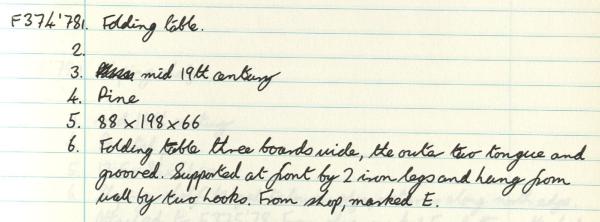 F374'78 1. Folding table.
2.
3. mid 19th century
4. Pine
5. 88 x 198 x 66
6. Folding table three boards wide, the outer two tongue and
grooved. Supported at front by 2 iron legs and hung from
wall by two hooks. From shop, marked E.